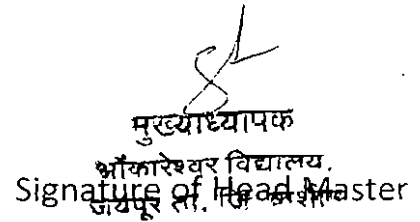 मुख्याध्यापक
ओंकारेश्वर विद्यालय.
जयपूर ता. जि
Signature of Head Master